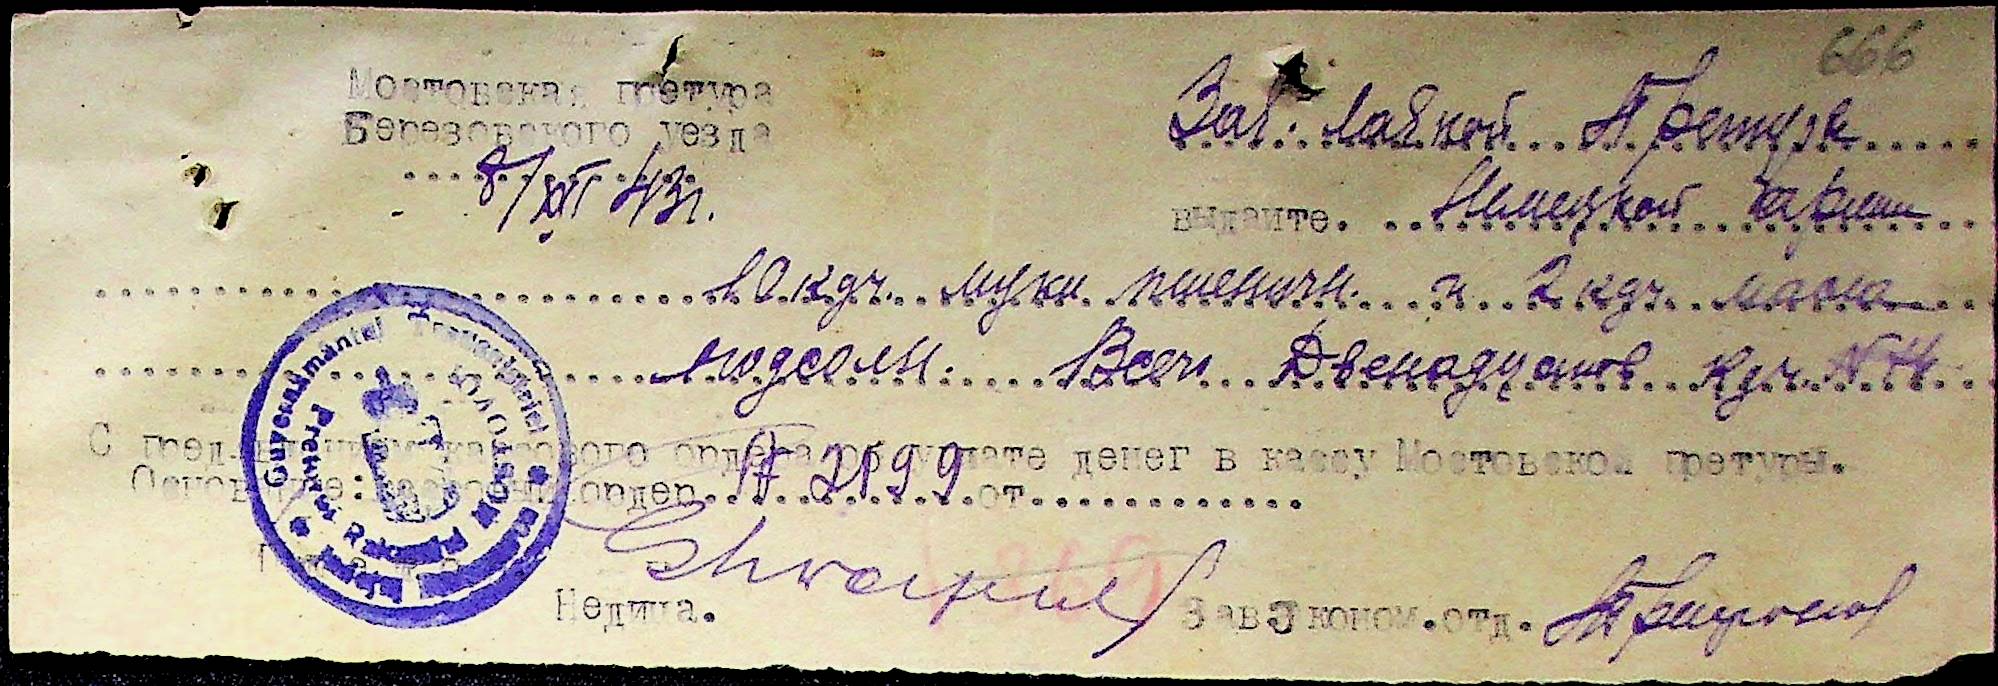 666
Мостовская претура
Березовского уезда
8/XII 43г.
Зав. лавкой Претуры
выдайте. Немецкой армии
10 кгр. муки пшеничн. и 2 кгр. масла
подсолн. Всего Двенадцать кгр.
С пред кассового ордера об уплате денег в кассу Мостовской претуры.
Основание: кассовый ордер № 2199 от
Guvernământul Transnistriei
Prefectura Județului
MOSTOVOI
Недица.
Зав Эконом. отд.